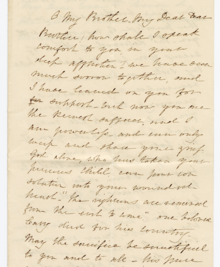 O My Brother, My Dear Dear
Brother, how shall I speak
comfort to you in your
deep affliction! we have seen
much sorrow together and
I have leaned on you for
support but now you are
the sufferer, and I
am powerless and can only
weep and share your grief
God alone, who has taken your
precious child can pour con
solation into your wounded
heart. "The righteous are removed
from the evil to come" our beloved
died for his country.
May the sacrifice be sanctified
to you and to all - his pure